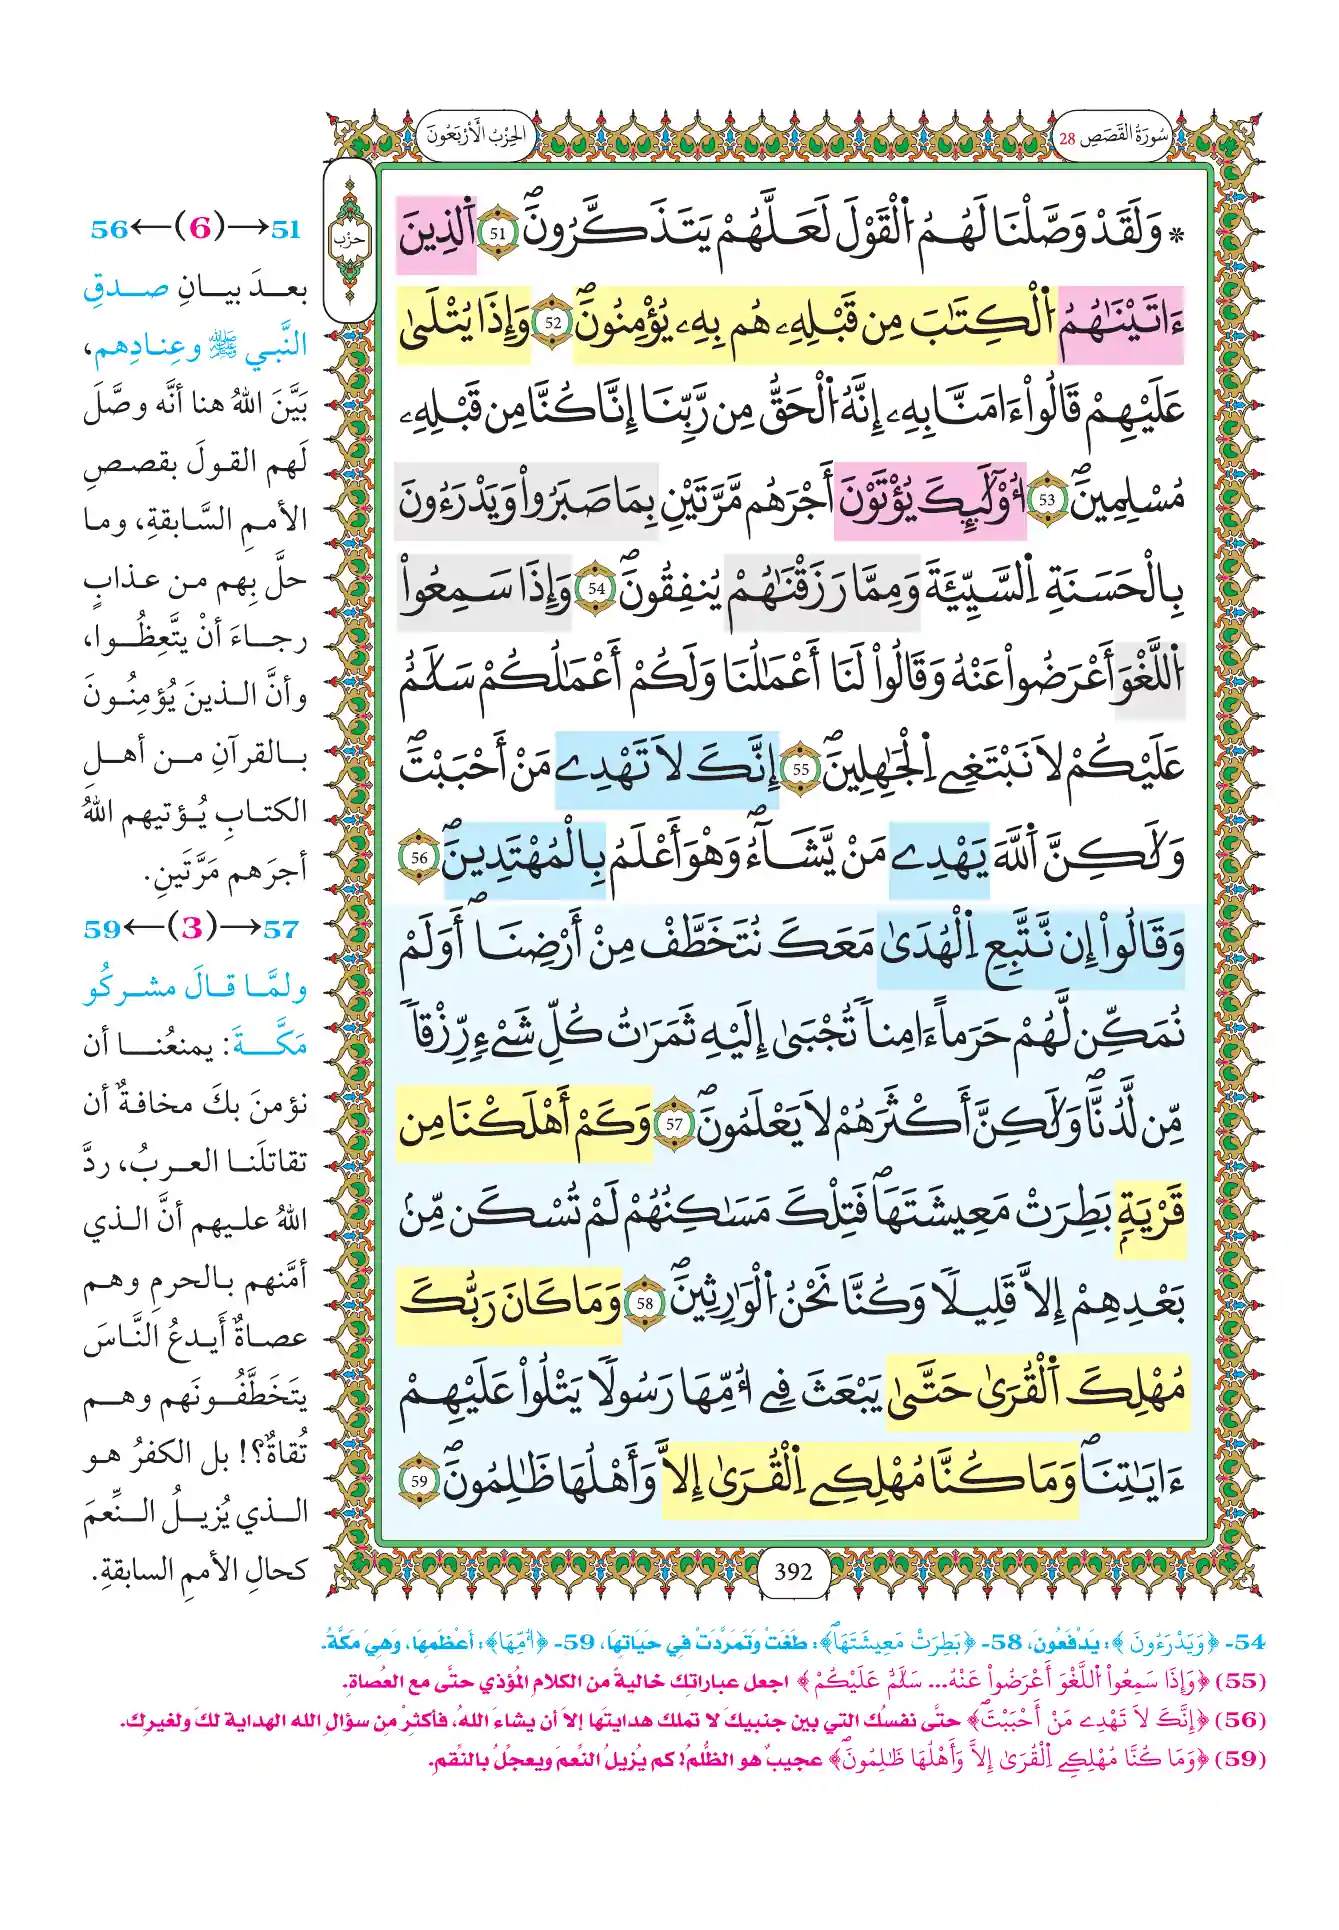 سُورَةُ القَصَصِ 28
الحِزْبُ الأَرْبَعُونَ
حِزْب
* وَلَقَدْ وَصَّلْنَا لَهُمُ اُ۬لْقَوْلَ لَعَلَّهُمْ يَتَذَكَّرُونَۖ 51 اَ۬لذِينَ
ءَاتَيْنَٰهُمُ اُ۬لْكِتَٰبَ مِن قَبْلِهِۦ هُم بِهِۦ يُؤْمِنُونَۖ 52 وَإِذَا يُتْلَىٰ
عَلَيْهِمْ قَالُواْ ءَامَنَّا بِهِۦ إِنَّهُ اُ۬لْحَقُّ مِن رَّبِّنَا إِنَّا كُنَّا مِن قَبْلِهِۦ
مُسْلِمِينَۖ 53 أُوْلَٰٓئِكَ يُؤْتَوْنَ أَجْرَهُم مَّرَّتَيْنِ بِمَا صَبَرُواْ وَيَدْرَءُونَ
بِالْحَسَنَةِ اِ۬لسَّيِّئَةَ وَمِمَّا رَزَقْنَٰهُمْ يُنفِقُونَۖ 54 وَإِذَا سَمِعُواْ
اُ۬للَّغْوَ أَعْرَضُواْ عَنْهُ وَقَالُواْ لَنَا أَعْمَٰلُنَا وَلَكُمْ أَعْمَٰلُكُمْ سَلَٰمٌ
عَلَيْكُمْ لَا نَبْتَغِے اِ۬لْجَٰهِلِينَۖ 55 إِنَّكَ لَا تَهْدِے مَنْ أَحْبَبْتَۖ
وَلَٰكِنَّ اَ۬للَّهَ يَهْدِے مَنْ يَّشَآءُۖ وَهْوَ أَعْلَمُ بِالْمُهْتَدِينَۖ 56
وَقَالُواْ إِن نَّتَّبِعِ اِ۬لْهُدَىٰ مَعَكَ نُتَخَطَّفْ مِنْ أَرْضِنَاۖ أَوَلَمْ
نُمَكِّن لَّهُمْ حَرَماً ءَامِناً تُجْبَىٰ إِلَيْهِ ثَمَرَٰتُ كُلِّ شَےْءٍ رِّزْقاً
مِّن لَّدُنَّاۖ وَلَٰكِنَّ أَكْثَرَهُمْ لَا يَعْلَمُونَۖ 57 وَكَمْ أَهْلَكْنَا مِن
قَرْيَةِۢ بَطِرَتْ مَعِيشَتَهَاۖ فَتِلْكَ مَسَٰكِنُهُمْ لَمْ تُسْكَن مِّنۢ
بَعْدِهِمْ إِلَّا قَلِيلًا وَكُنَّا نَحْنُ اُ۬لْوَٰرِثِينَۖ 58 وَمَا كَانَ رَبُّكَ
مُهْلِكَ اَ۬لْقُرَىٰ حَتَّىٰ يَبْعَثَ فِے أُمِّهَا رَسُولًا يَتْلُواْ عَلَيْهِمْ
ءَايَٰتِنَاۖ وَمَا كُنَّا مُهْلِكِے اِ۬لْقُرَىٰ إِلَّا وَأَهْلُهَا ظَٰلِمُونَۖ 59
392
51→(6)←56
بعدَ بيانِ صدقِ
النَّبي ﷺ وعِنادِهم،
بَيَّنَ اللهُ هنا أنَّه وصَّلَ
لَهم القولَ بقصصِ
الأممِ السَّابقةِ، وما
حلَّ بِهم من عذابٍ
رجاءَ أنْ يتَّعِظُوا،
وأنَّ الذينَ يُؤمِنُونَ
بالقرآنِ من أهلِ
الكتابِ يُؤتيهم اللهُ
أجرَهم مَرَّتَينِ.
57→(3)←59
ولمَّا قالَ مشركُو
مَكَّةَ: يمنعُنا أن
نؤمنَ بكَ مخافةٌ أن
تقاتلَنا العربُ، ردَّ
اللهُ عليهم أنَّ الذي
أمَّنهم بالحرمِ وهم
عصاةٌ أَيدعُ النَّاسَ
يتَخطَّفُونَهم وهم
تُقاةٌ؟! بل الكفرُ هو
الذي يُزيلُ النِّعمَ
كحالِ الأممِ السابقةِ.
54- ﴿وَيَدْرَءُونَ﴾: يَدْفَعُونَ، 58- ﴿بَطِرَتْ مَعِيشَتَهَاۖ﴾: طَغَتْ وَتَمَرَّدَتْ فِي حَيَاتِهَا، 59- ﴿أُمِّهَا﴾: أَعْظَمِهَا، وَهِيَ مَكَّةُ.
(55) ﴿وَإِذَا سَمِعُواْ اُ۬للَّغْوَ أَعْرَضُواْ عَنْهُ... سَلَٰمٌ عَلَيْكُمْ﴾ اجعل عباراتك خاليةً من الكلامِ المُؤذي حتَّى مع العُصاةِ.
(56) ﴿إِنَّكَ لَا تَهْدِے مَنْ أَحْبَبْتَۖ﴾ حتَّى نفسُك التي بين جنبيكَ لا تملك هدايتَها إلا أن يشاءَ اللهُ، فأكثرْ مِن سؤالِ الله الهداية لكَ ولغيرِك.
(59) ﴿وَمَا كُنَّا مُهْلِكِے اِ۬لْقُرَىٰ إِلَّا وَأَهْلُهَا ظَٰلِمُونَۖ﴾ عجيبٌ هو الظُّلمُ! كم يُزيلُ النِّعمَ ويعجِّلُ بالنِّقمِ.